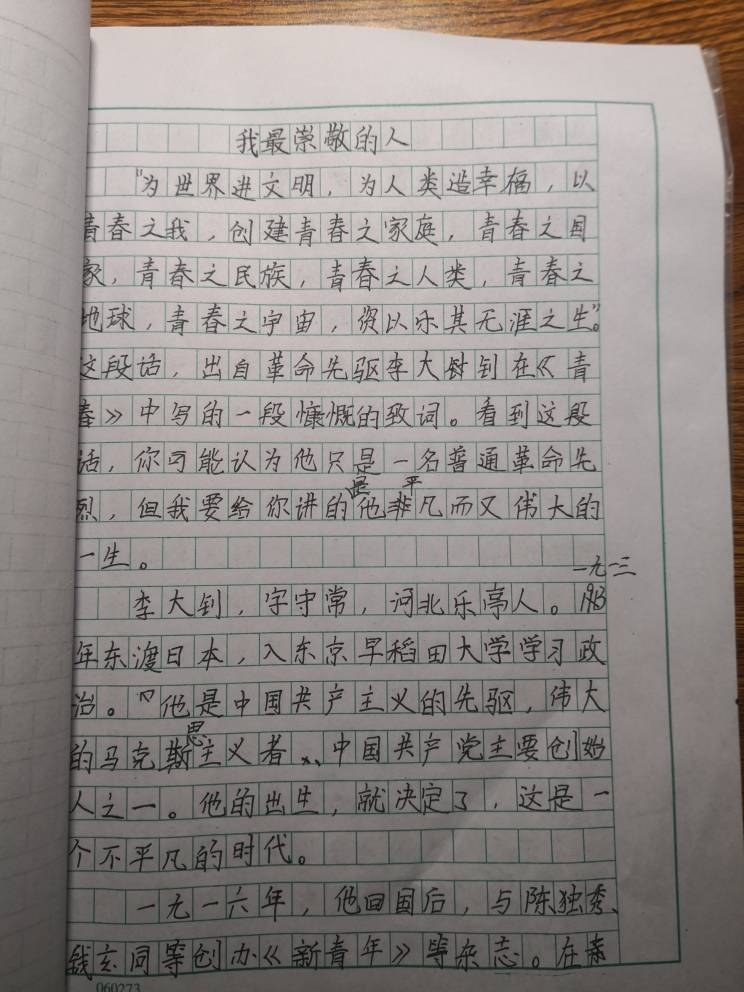 我最崇敬的人
"为世界进文明，为人类造幸福，以
青春之我，创建青春之家庭，青春之国
家，青春之民族，青春之人类，青春之
地球，青春之宇宙，资以乐其无涯之生"。
这段话，出自革命先驱李大钊在《青
春》中写的一段慷慨的致词。看到这段
话，你可能认为他只是一名普通革命先
是 平
烈，但我要给你讲的他非凡而又伟大的
一生。
一九一三
李大钊，字守常，河北乐亭人。1913
年东渡日本，入东京早稻田大学学习政
治。他是中国共产主义的先驱，伟大
思
的马克斯主义者、中国共产党主要创始
人之一。他的出生，就决定了，这是一
个不平凡的时代。
一九一六年，他回国后，与陈独秀、
钱玄同等创办《新青年》等杂志。在
060273